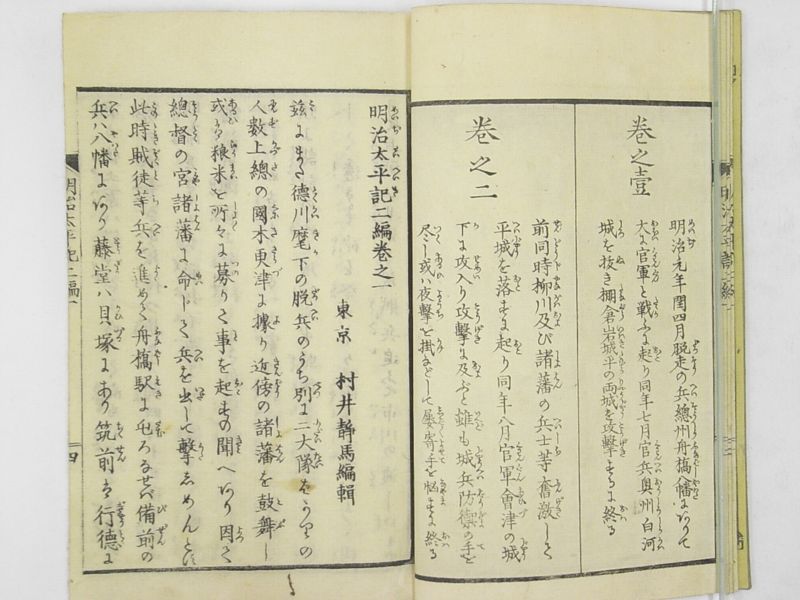 卷之壹
明治元年閏四月脱走の兵總州舟橋八幡に
大に官軍と戰ふに起り同年七月官兵奥州白河
城を抜き棚倉岩城平の両城を攻撃するに終る
卷之二
前同時柳川及び諸藩の兵士等奮激して
平城を落すに起り同年八月官軍會津の城
下に攻入り攻撃に及ぶと雖も城兵防禦の手を
尽し或ハ夜撃を掛などして屡寄手を悩すに終る
明治太平記二編卷之一
東京 村井静馬編輯
茲にまた德川麾下の脱兵のうち別に二大隊ばかりの
人数上總の國木更津に據り近傍の諸藩を鼓舞し
或は粮米を所々に募りて事を起すの聞へあり因て
總督の宮諸藩に命じて兵を出して撃しめんとに
此時賊徒等兵を進めて舟橋駅に屯ろるせバ備前の
兵ハ八幡にあり藤堂ハ貝塚にあり筑前は行德に
明治太平記二編一
四